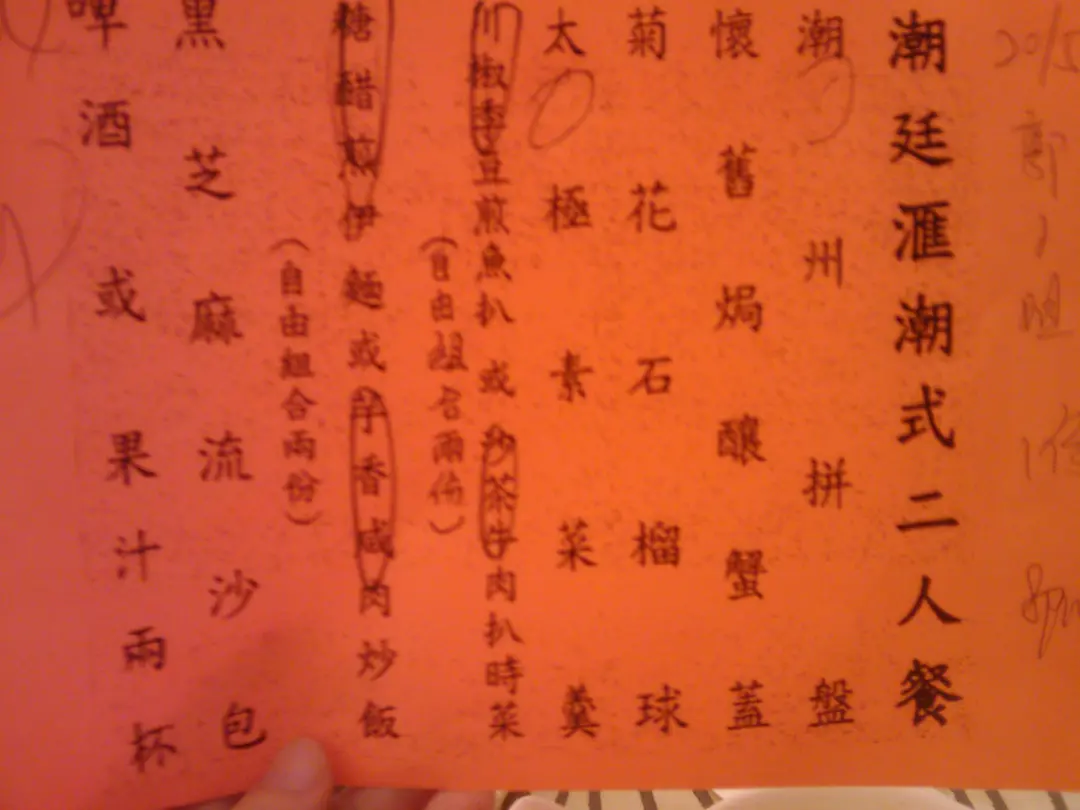 潮廷滙潮式二人餐
潮州拼盤
懷舊焗釀蟹蓋
菊花石榴球
太極素菜羹
川椒季豆煎魚扒或沙茶牛肉扒時菜
（自由組合兩份）
糖醋煎伊麵或芋香咸肉炒飯
（自由組合兩份）
黑芝麻流沙包
啤酒或果汁兩杯